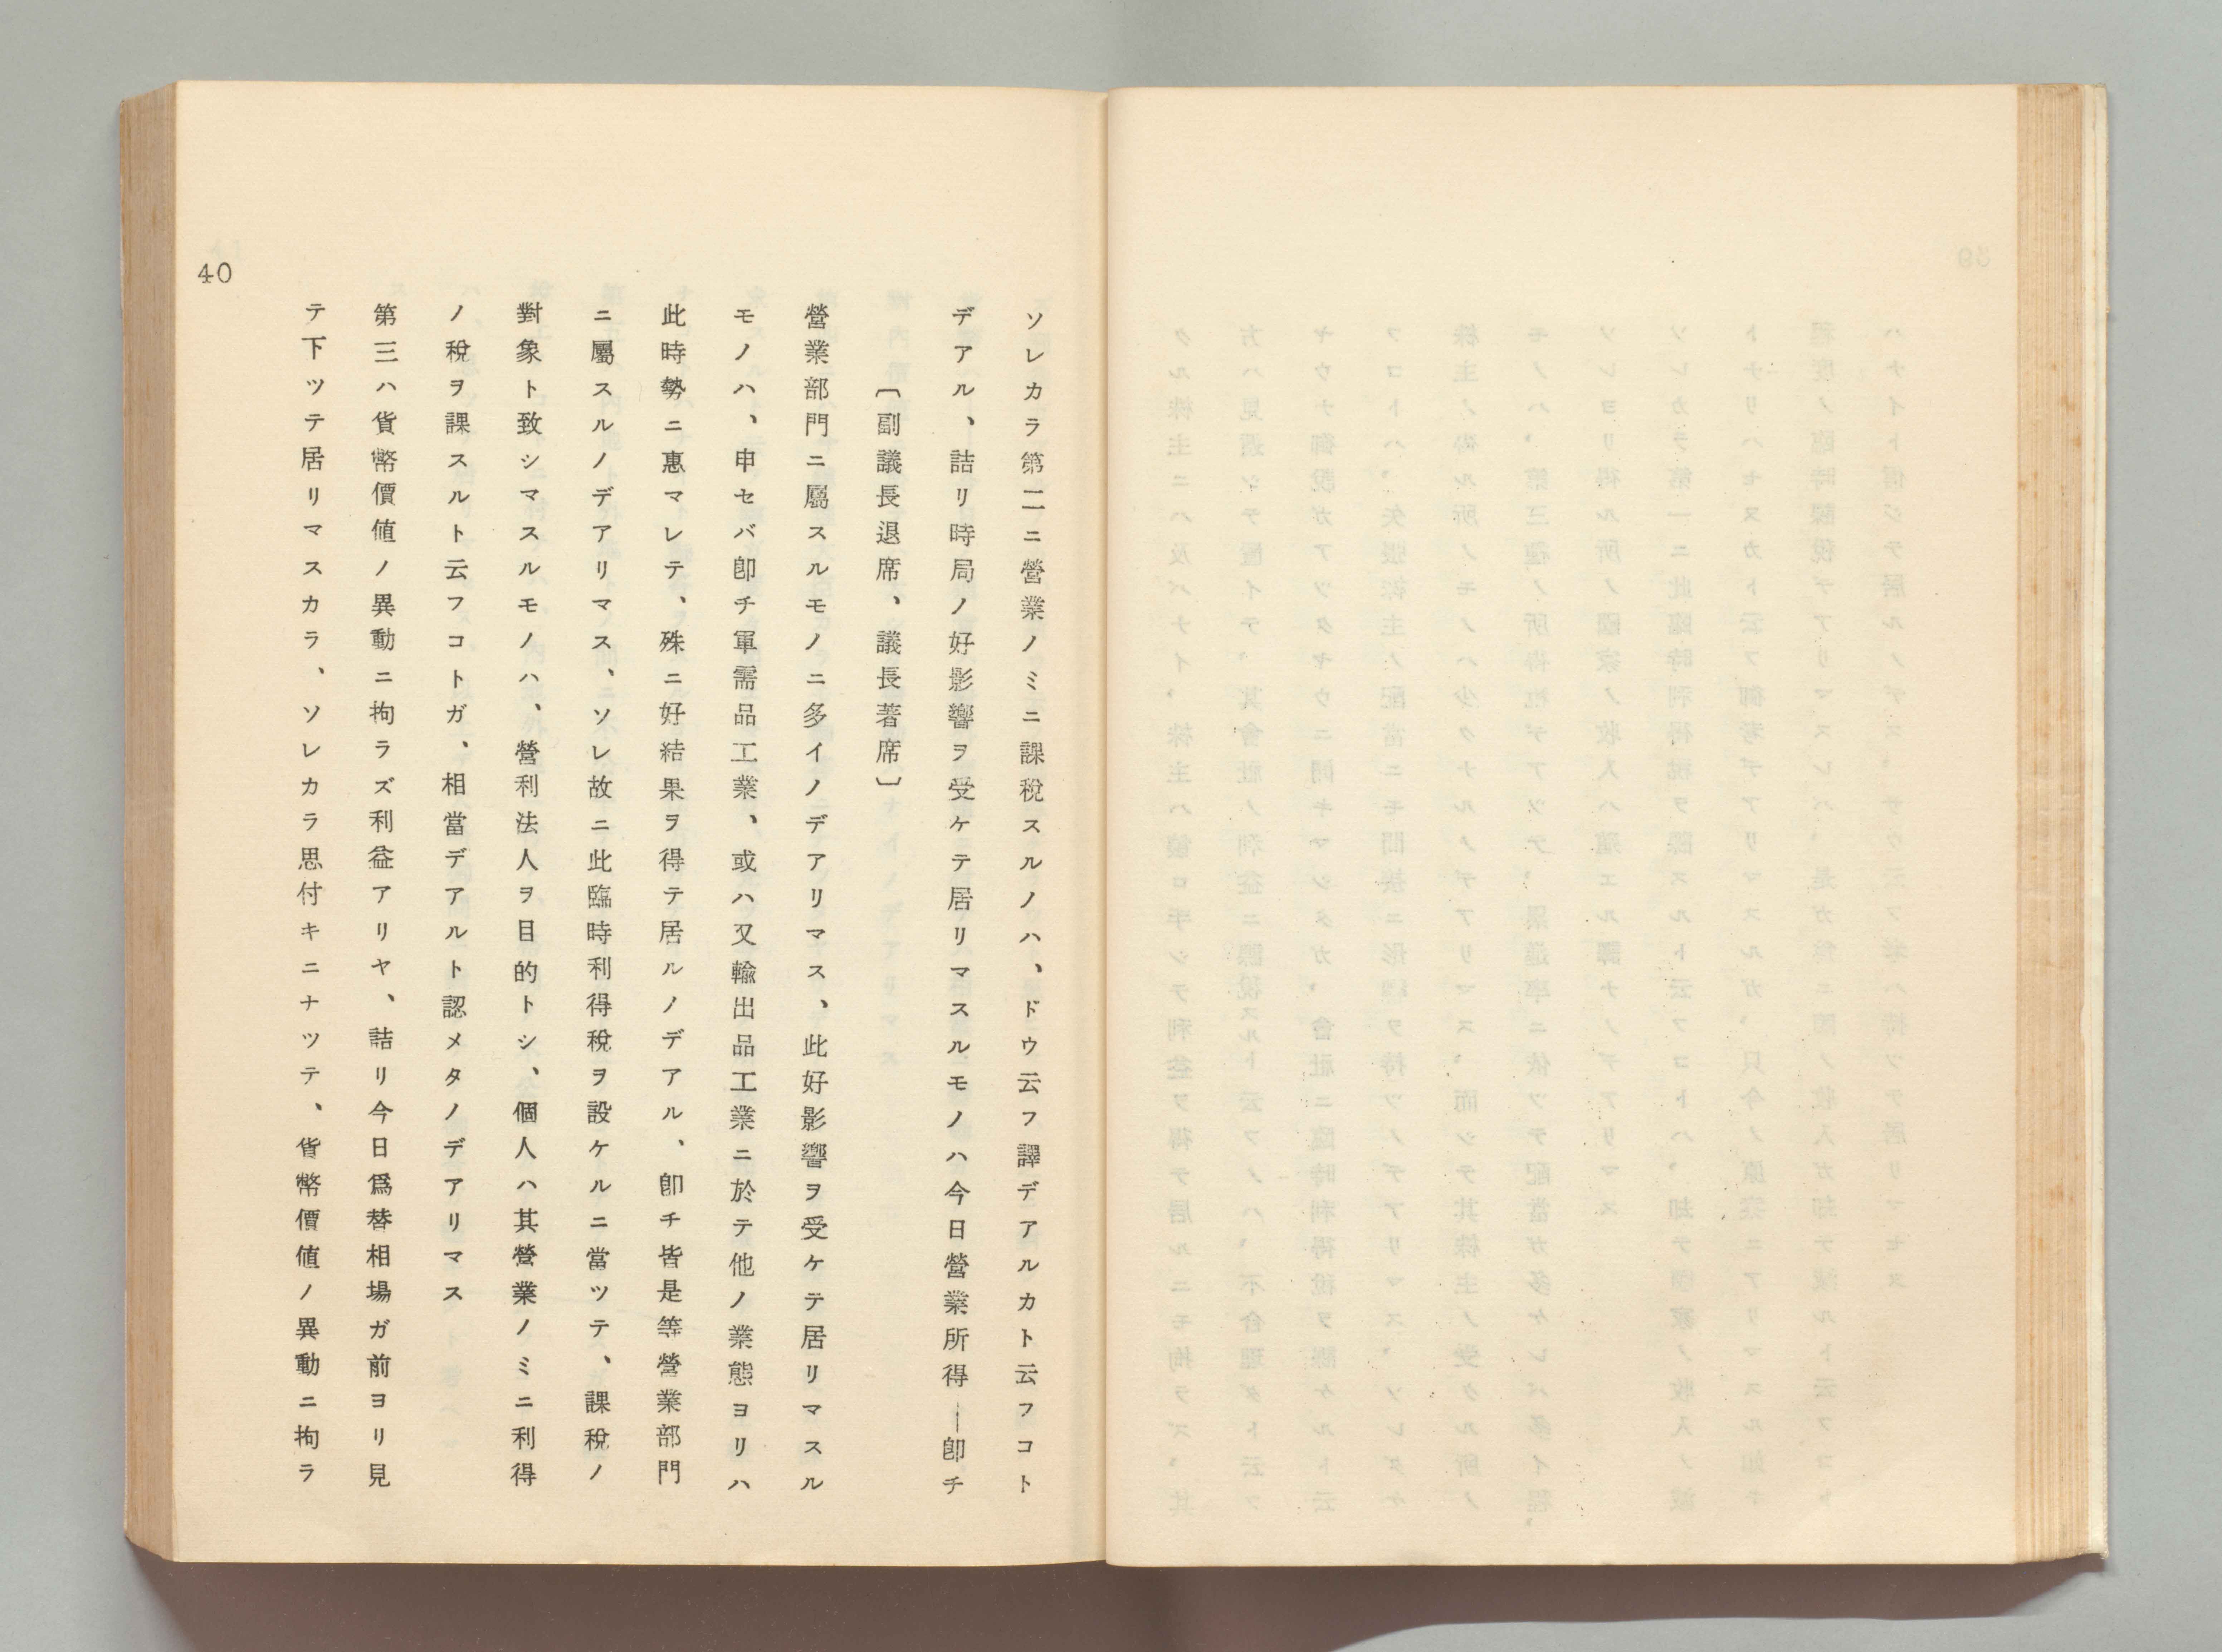 ソレカラ第二ニ營業ノミニ課税スルノハ、ドウ云フ譯デアルカト云フコト
デアル、詰リ時局ノ好影響ヲ受ケテ居リマスルモノハ今日營業所得―卽チ
〔副議長退席、議長著席〕
營業部門ニ屬スルモノニ多イノデアリマス、此好影響ヲ受ケテ居リマスル
モノハ、申セバ卽チ軍需品工業、或ハ又輸出品工業ニ於テ他ノ業態ヨリハ
此時勢ニ惠マレテ、殊ニ好結果ヲ得テ居ルノデアル、卽チ皆是等營業部門
ニ屬スルノデアリマス、ソレ故ニ此臨時利得税ヲ設ケルニ當ツテ、課税ノ
對象ト致シマスルモノハ、營利法人ヲ目的トシ、個人ハ其營業ノミニ利得
ノ税ヲ課スルト云フコトガ、相當デアルト認メタノデアリマス
第三ハ貨幣價値ノ異動ニ拘ラズ利益アリヤ、詰リ今日爲替相場ガ前ヨリ見
テ下ツテ居リマスカラ、ソレカラ思付キニナツテ、貨幣價値ノ異動ニ拘ラ
40